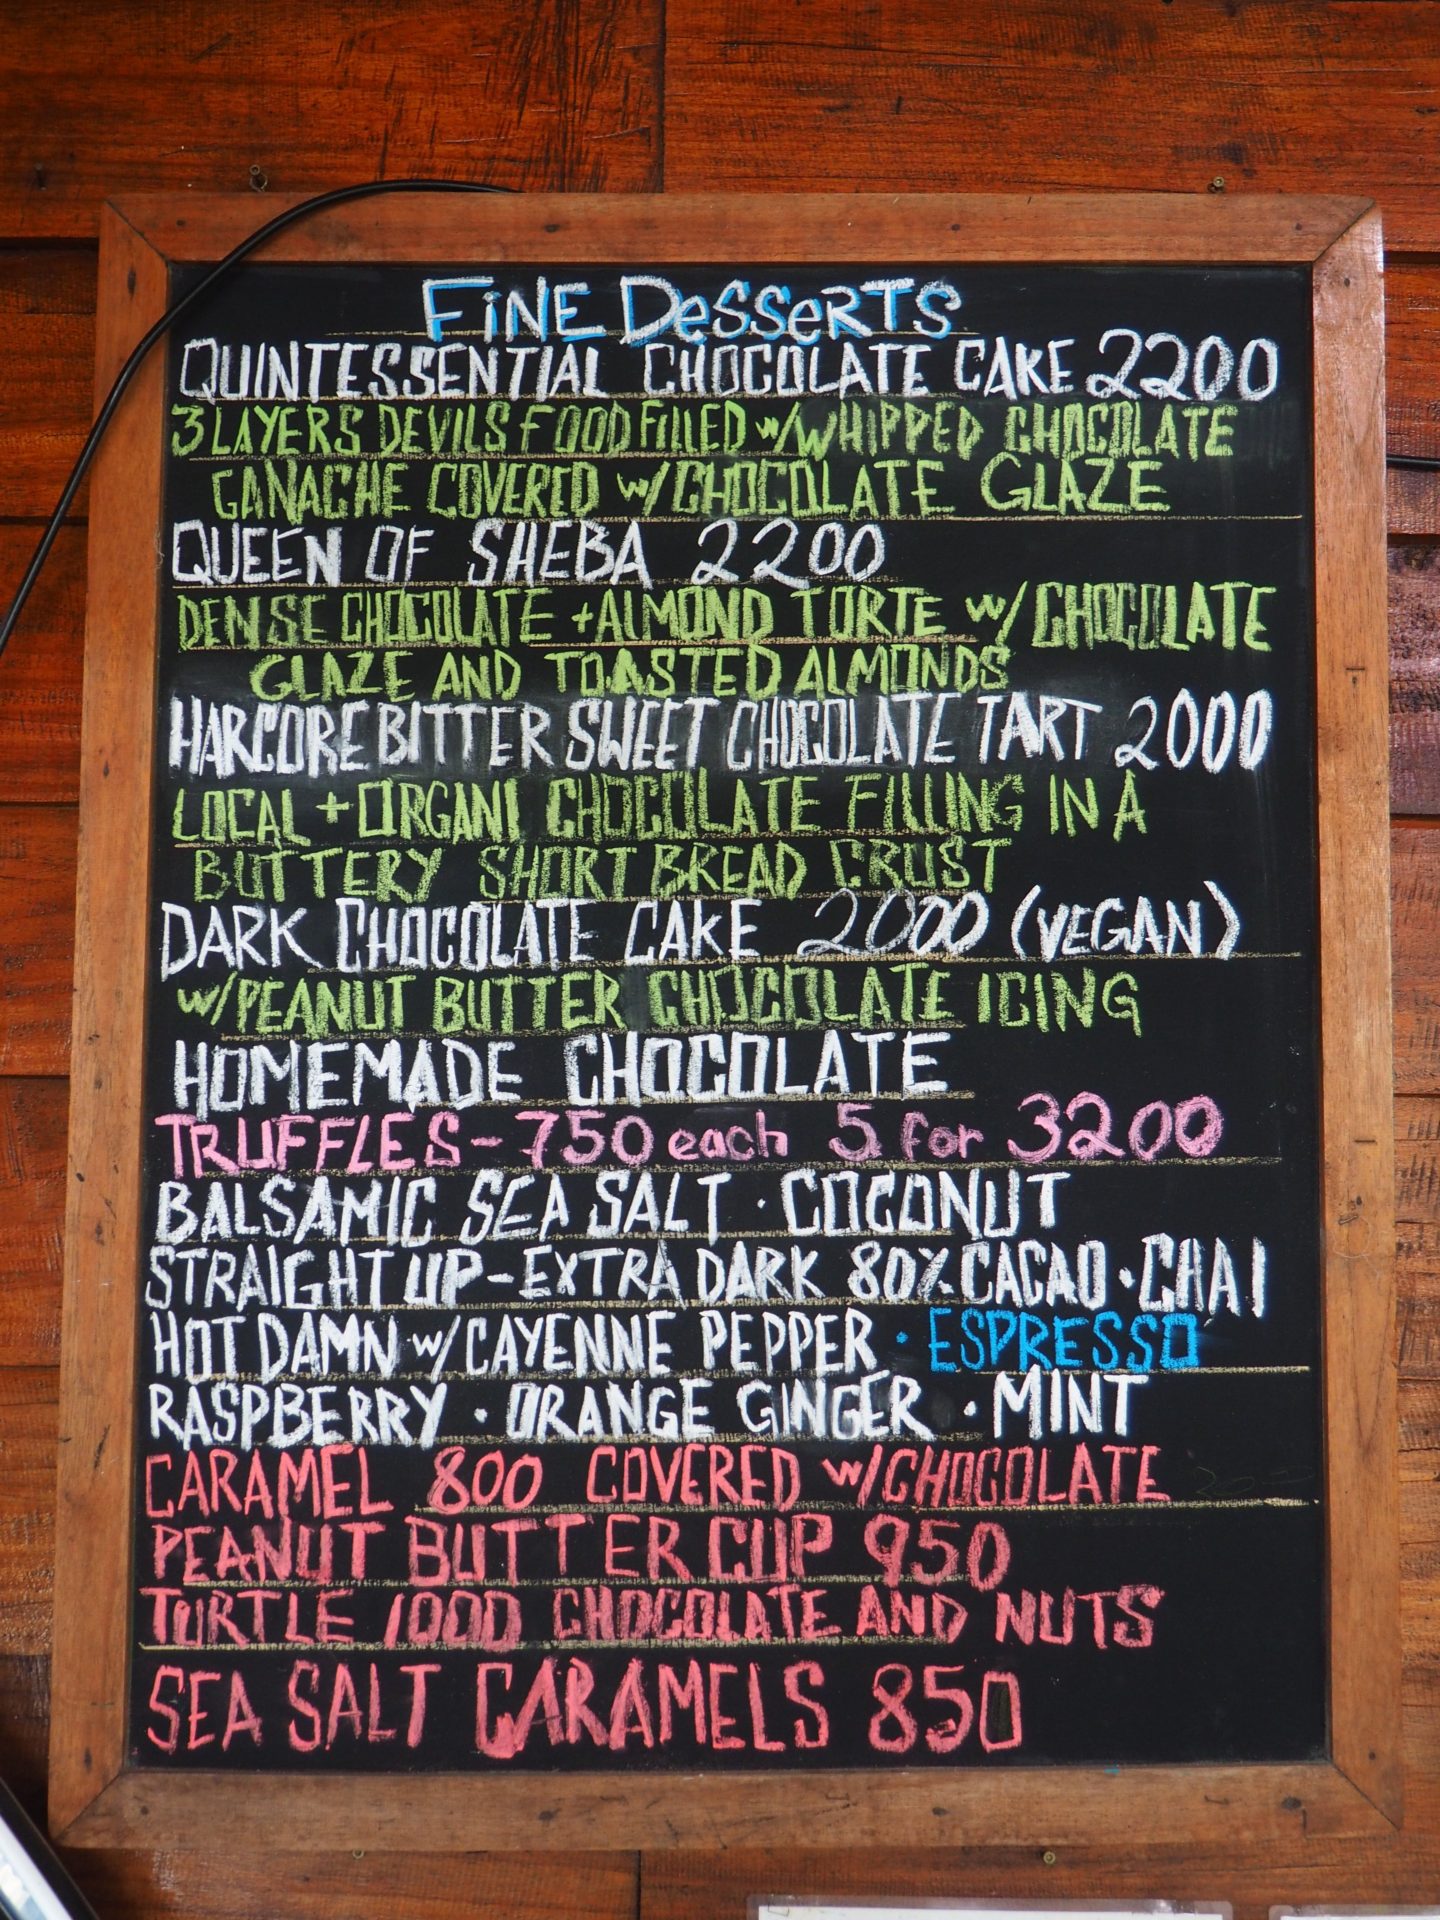 FiNE DesseRTS
QUINTESSENTIAL CHOCOLATE CAKE 2200
3 LAYERS DEVILS FOOD FILLED w/WHIPPED CHOCOLATE
GANACHE COVERED w/CHOCOLATE GLAZE
QUEEN OF SHEBA 2200
DENSE CHOCOLATE + ALMOND TORTE w/ CHOCOLATE
GLAZE AND TOASTED ALMONDS
HARCORE BITTER SWEET CHOCOLATE TART 2000
LOCAL + ORGANI CHOCOLATE FILLING IN A
BUTTERY SHORT BREAD CRUST
DARK CHOCOLATE CAKE 2000 (VEGAN)
w/PEANUT BUTTER CHOCOLATE ICING
HOMEMADE CHOCOLATE
TRUFFLES - 750 each 5 for 3200
BALSAMIC SEA SALT · COCONUT
STRAIGHT UP - EXTRA DARK 80% CACAO · CHAI
HOT DAMN w/CAYENNE PEPPER · ESPRESSO
RASPBERRY · ORANGE GINGER · MINT
CARAMEL 800 COVERED w/CHOCOLATE
PEANUT BUTTER CUP 950
TURTLE 1000 CHOCOLATE AND NUTS
SEA SALT CARAMELS 850